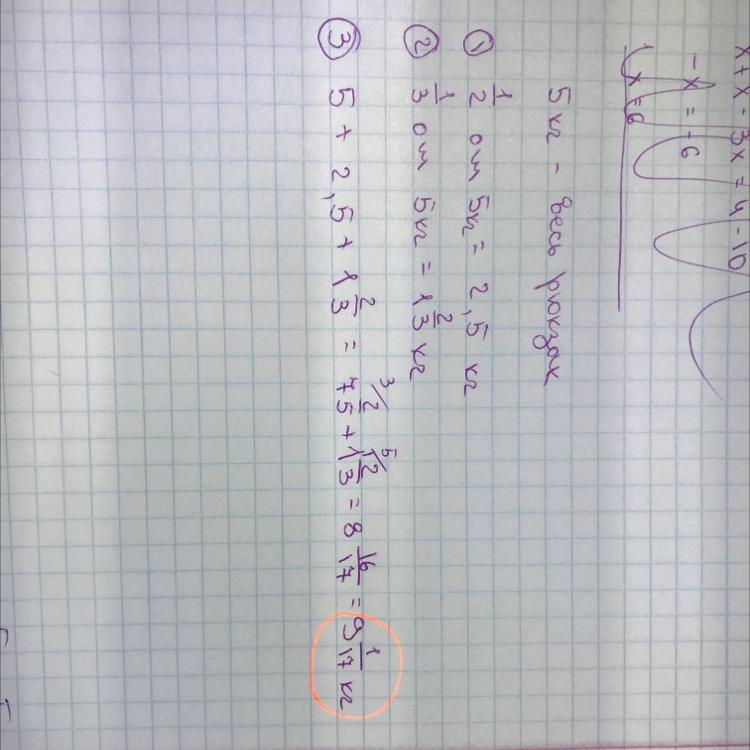 x + x - 3x = 4 - 10
-x = -6
x = 6
5кг - весь рюкзак
① 1/2 от 5кг = 2,5 кг
② 1/3 от 5кг = 1 2/3 кг
③ 5 + 2,5 + 1 2/3 = 7 2/5 + 1 2/3 = 8 16/17 = 9 1/17 кг